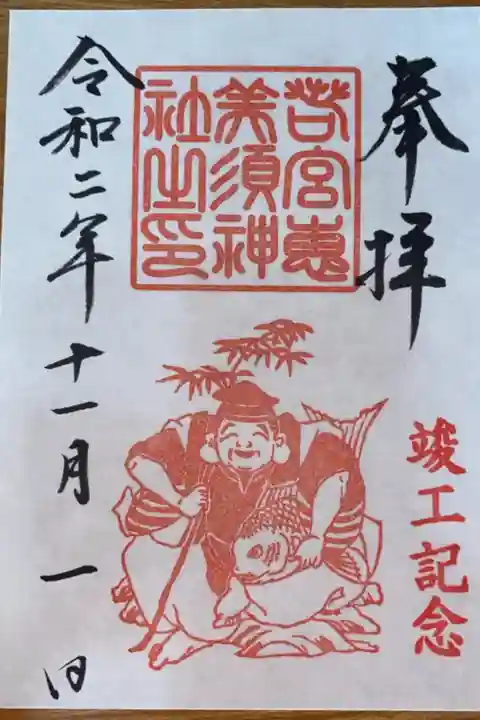 奉拝
竣工記念
若宮恵
美須神
社之印
令和二年十一月一日